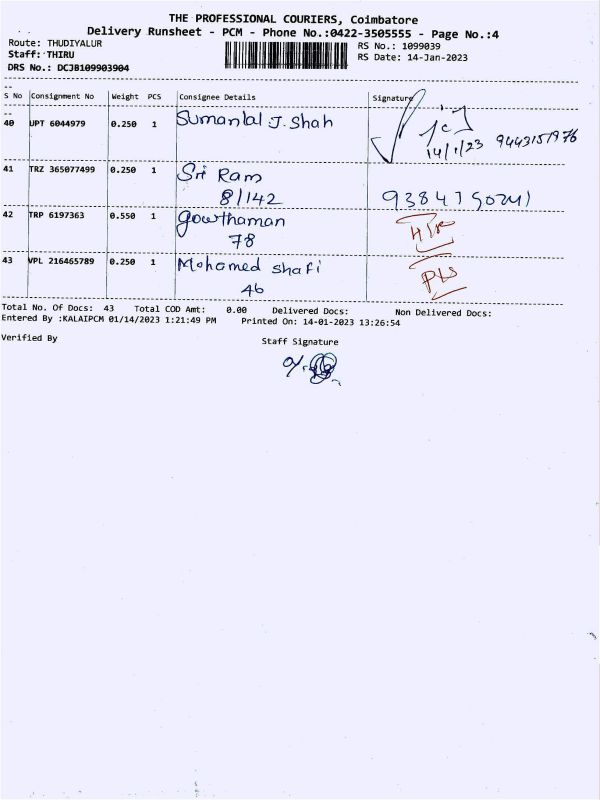 THE PROFESSIONAL COURIERS, Coimbatore
Delivery Runsheet - PCM - Phone No.:0422-3505555 - Page No.:4
Route: THUDIYALUR
RS No.: 1099039
Staff: THIRU
RS Date: 14-Jan-2023
DRS No.: DCJB109903904
S No Consignment No Weight PCS Consignee Details Signature
40 UPT 6044979 0.250 1 Sumanlal J. Shah
14/1/23 9443151976
41 TRZ 365077499 0.250 1 Sri Ram
8/142
42 TRP 6197363 0.550 1 Gowthaman
78
43 VPL 216465789 0.250 1 Mohamed Shafi
46
Total No. Of Docs: 43 Total COD Amt: 0.00 Delivered Docs: Non Delivered Docs:
Entered By :KALAIPCM 01/14/2023 1:21:49 PM Printed On: 14-01-2023 13:26:54
Verified By Staff Signature